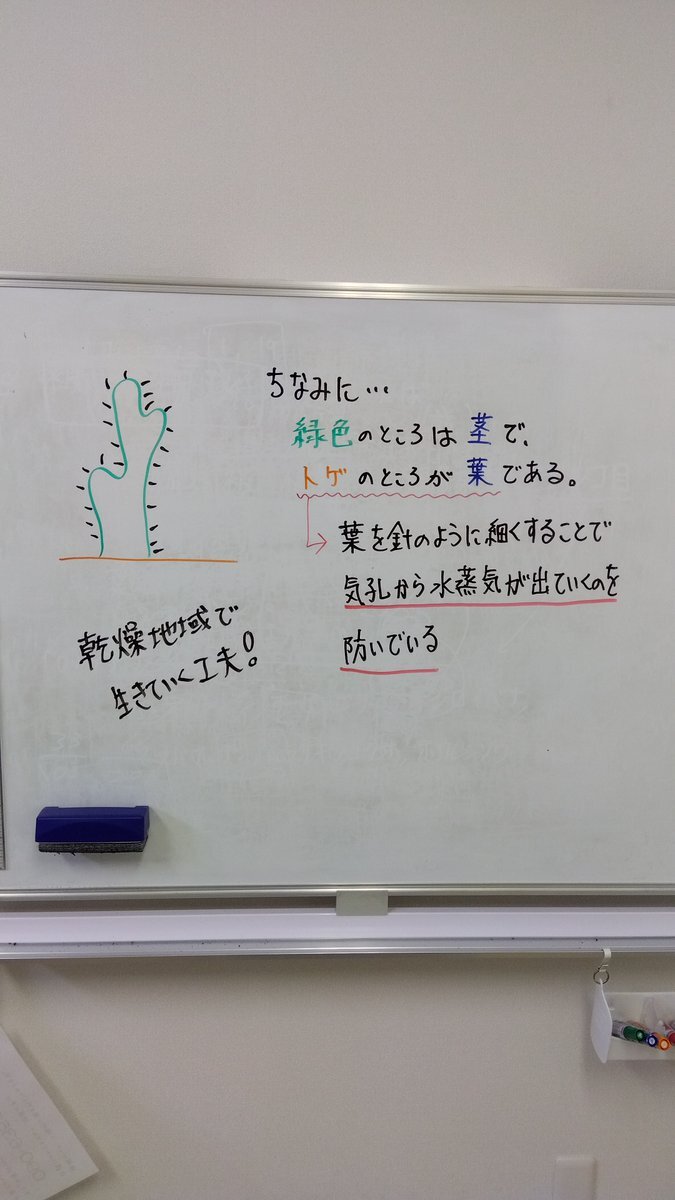 ちなみに…
緑色のところは茎で、
トゲのところが葉である。
葉を針のように細くすることで
気孔から水蒸気が出ていくのを
防いでいる
乾燥地域で
生きていく工夫!